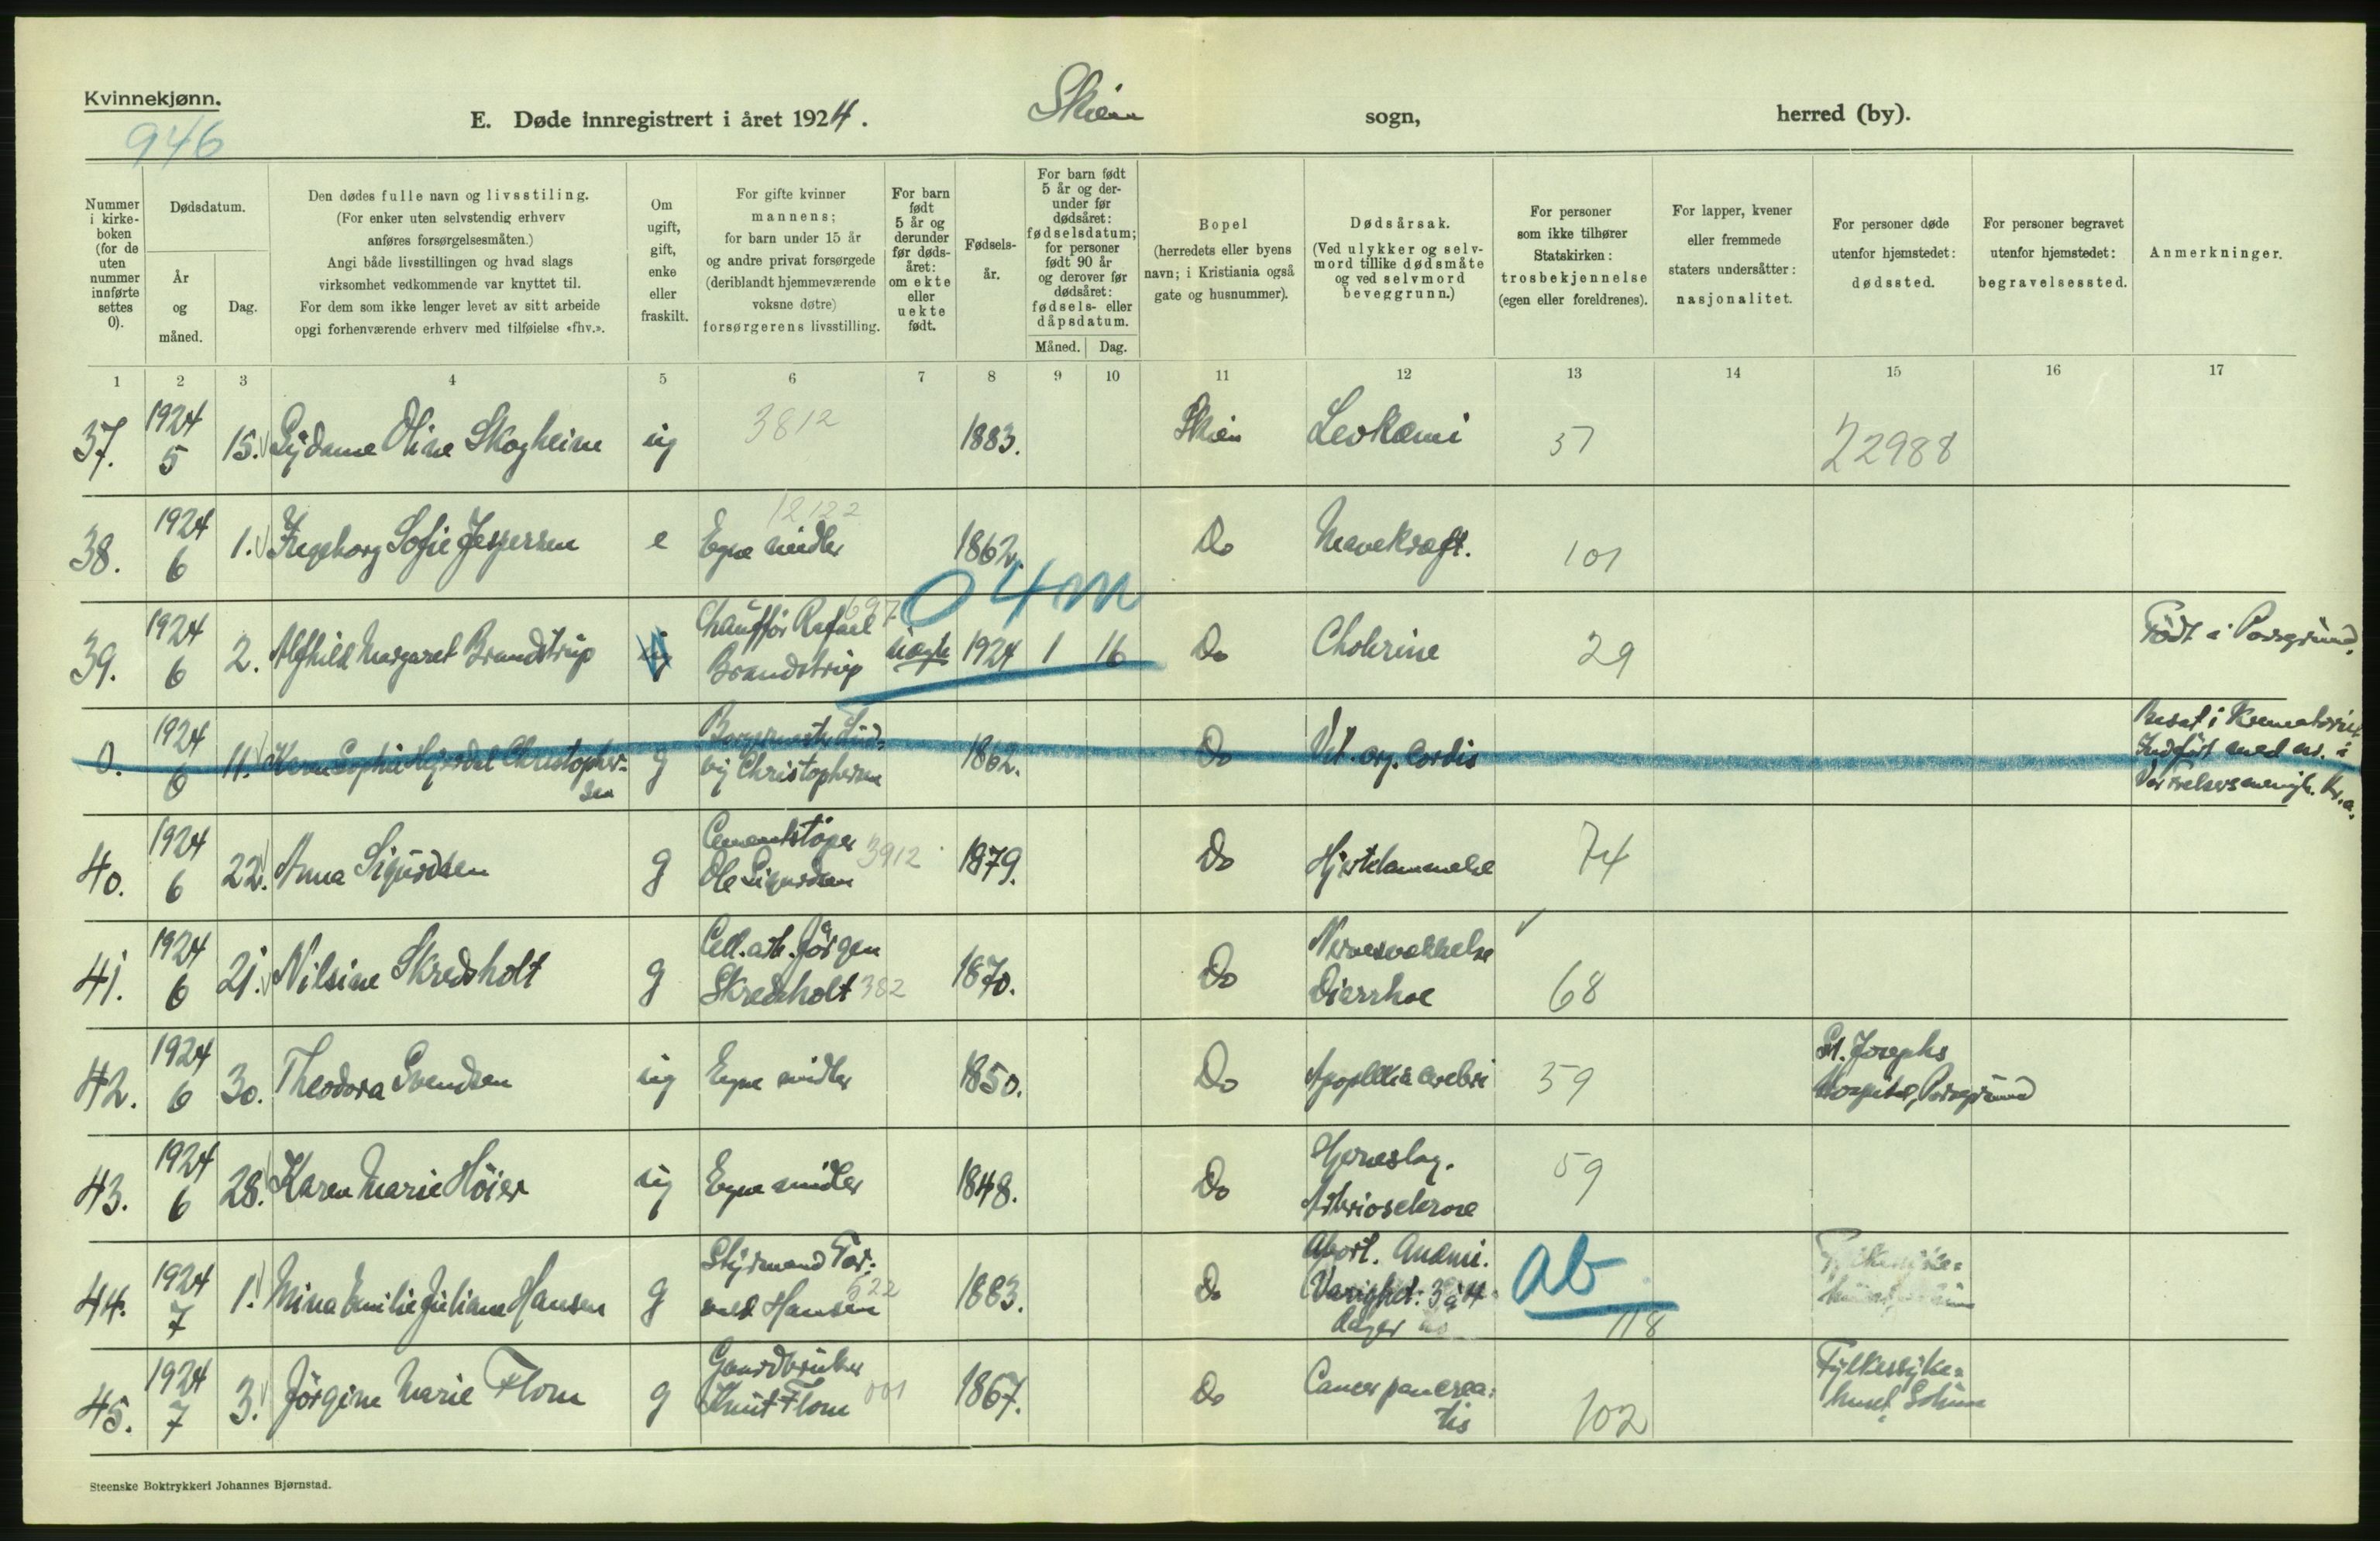 Kvinnekjønn.
946
E. Døde innregistrert i året 1924. Skien sogn, herred (by).
Nummer i kirkeboken (for de uten nummer innførte settes 0).
Dødsdatum.
År og måned.
Dag.
Den dødes fulle navn og livsstiling.
(For enker uten selvstendig erhverv
anføres forsørgelsesmåten.)
Angi både livsstillingen og hvad slags
virksomhet vedkommende var knyttet til.
For dem som ikke lenger levet av sitt arbeide
opgi forhenværende erhverv med tilføielse «fhv.».
Om ugift, gift, enke eller fraskilt.
For gifte kvinner
mannens;
for barn under 15 år
og andre privat forsørgede
(deriblandt hjemmeværende
voksne døtre)
forsørgerens livsstilling.
For barn født 5 år og derunder før dødsåret: om ekte eller uekte født.
Fødselsår.
For barn født 5 år og derunder før dødsåret: fødselsdatum; for personer født 90 år og derover før dødsåret: fødsels- eller dåpsdatum.
Måned. Dag.
Bopel
(herredets eller byens
navn; i Kristiania også
gate og husnummer).
Dødsårsak.
(Ved ulykker og selvmord tillike dødsmåte
og ved selvmord
beveggrunn.)
For personer
som ikke tilhører
Statskirken:
trosbekjennelse
(egen eller foreldrenes).
For lapper, kvener
eller fremmede
staters undersåtter:
nasjonalitet.
For personer døde
utenfor hjemstedet:
dødssted.
For personer begravet
utenfor hjemstedet:
begravelsessted.
Anmerkninger.
1 2 3 4 5 6 7 8 9 10 11 12 13 14 15 16 17
37. 1924 5 15. Sydame Oline Skogheim ug 3812 1883. Skien Levkæmi 57 22988
38. 1924 6 1. Ingeborg Sofie Jespersen e Egne midler 12122 1862. Do Mavekræft. 101
04m
39. 1924 6 2. Alfhild Margaret Brandstrup Chauffør Rafael Brandstrup 697 uægte 1924 1 16 Do Cholerine 29 Født i Porsgrund.
0. 1924 6 11. Karen Sophie Hejerdal Christophersen g Borgermester Ludvig Christophersen 1862. Do Vit. org. cordis Bisat i Krematoriet Indført med nr. i Vor Frelsers menigh. Kr.a.
40. 1924 6 22. Anna Sigurdsen g Cementstøper Ole Sigurdsen 3912 1879. Do Hjertelammelse 74
41. 1924 6 21. Nilsine Skredsholt g Cell.arb. Jørgen Skredsholt 382 1870. Do Nervesvækkelse Diarrhoe 68
42. 1924 6 30. Theodora Svendsen ug Egne midler 1850. Do Apoplexia cerebri 59 St. Josephs Hospital, Porsgrund
43. 1924 6 28. Karen Marie Höier ug Egne midler 1848. Do Hjerneslag. Arteriosclerose 59
44. 1924 7 1. Mina Emilie Juliane Hansen g Styrmand Torvald Hansen 522 1883. Do Abort. Anæmi. Varighet: 3 à 4 dager ab 118
45. 1924 7 3. Jörgine Marie Flom g Gaardbruker Knut Flom 001 1867. Do Cancer pancreatis 102 Fylkessykehuset, Solum
Steenske Boktrykkeri Johannes Bjørnstad.